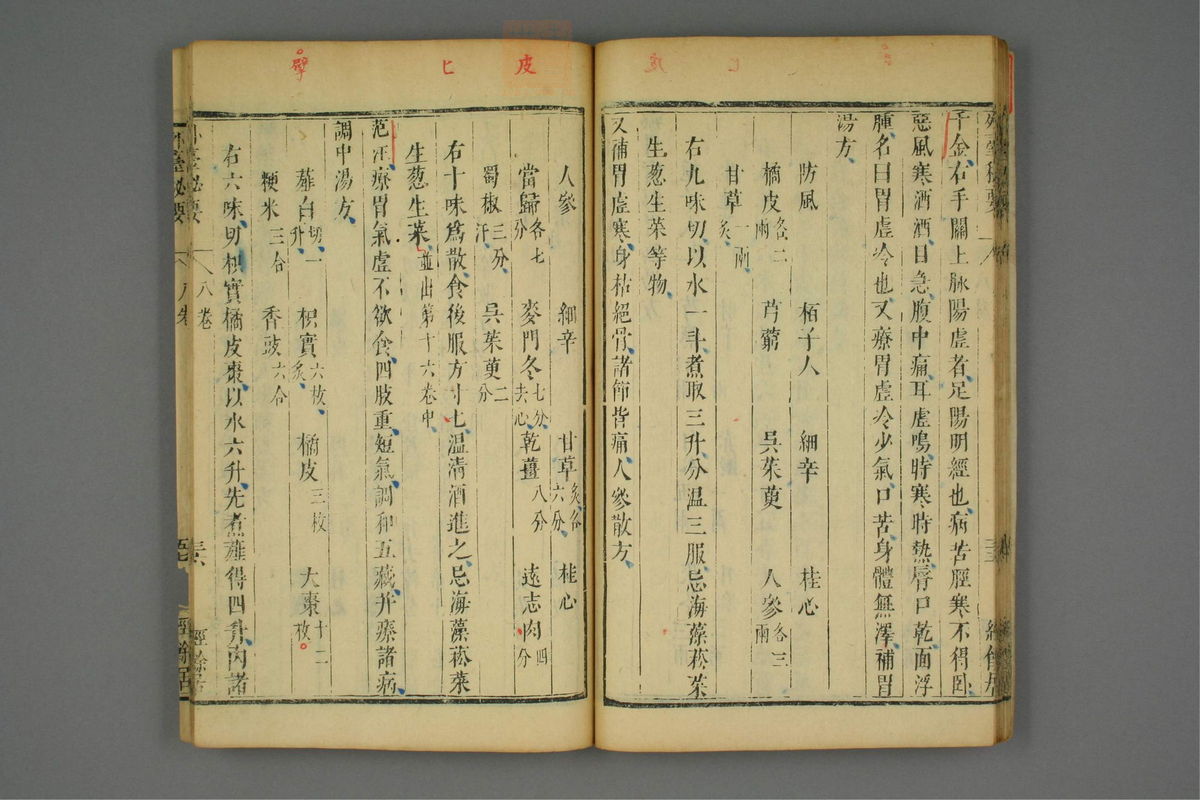 千金右手關上脉陽虛者足陽明經也病苦脛寒不得臥
惡風寒洒洒目急腹中痛耳虛鳴時寒時熱唇口乾面浮
腫名曰胃虛冷也又療胃虛冷少氣口苦身體無澤補胃
湯方
防風 栢子人 細辛 桂心
橘皮各二兩 芎藭 吳茱萸 人參各三兩
甘草一兩炙
右九味切以水一斗煮取三升分温三服忌海藻菘菜
生葱生菜等物
又補胃虛寒身枯絕骨諸節皆痛人參散方
人參 細辛 甘草炙各六分 桂心
當歸各七分 麥門冬七分去心 乾薑八分 遠志肉四分
蜀椒三分汗 吳茱萸二分
右十味為散食後服方寸七温清酒進之忌海藻菘菜
生葱生菜並出第十六卷中
范汪療胃氣虛不欲食四肢重短氣調和五藏并療諸病
調中湯方
薤白切一升 枳實六枚炙 橘皮三枚 大棗十二枚
粳米三合 香豉六合
右六味切枳實橘皮棗以水六升先煮薤得四升內諸
外臺秘要 八卷 經餘居
皮 匕 擘